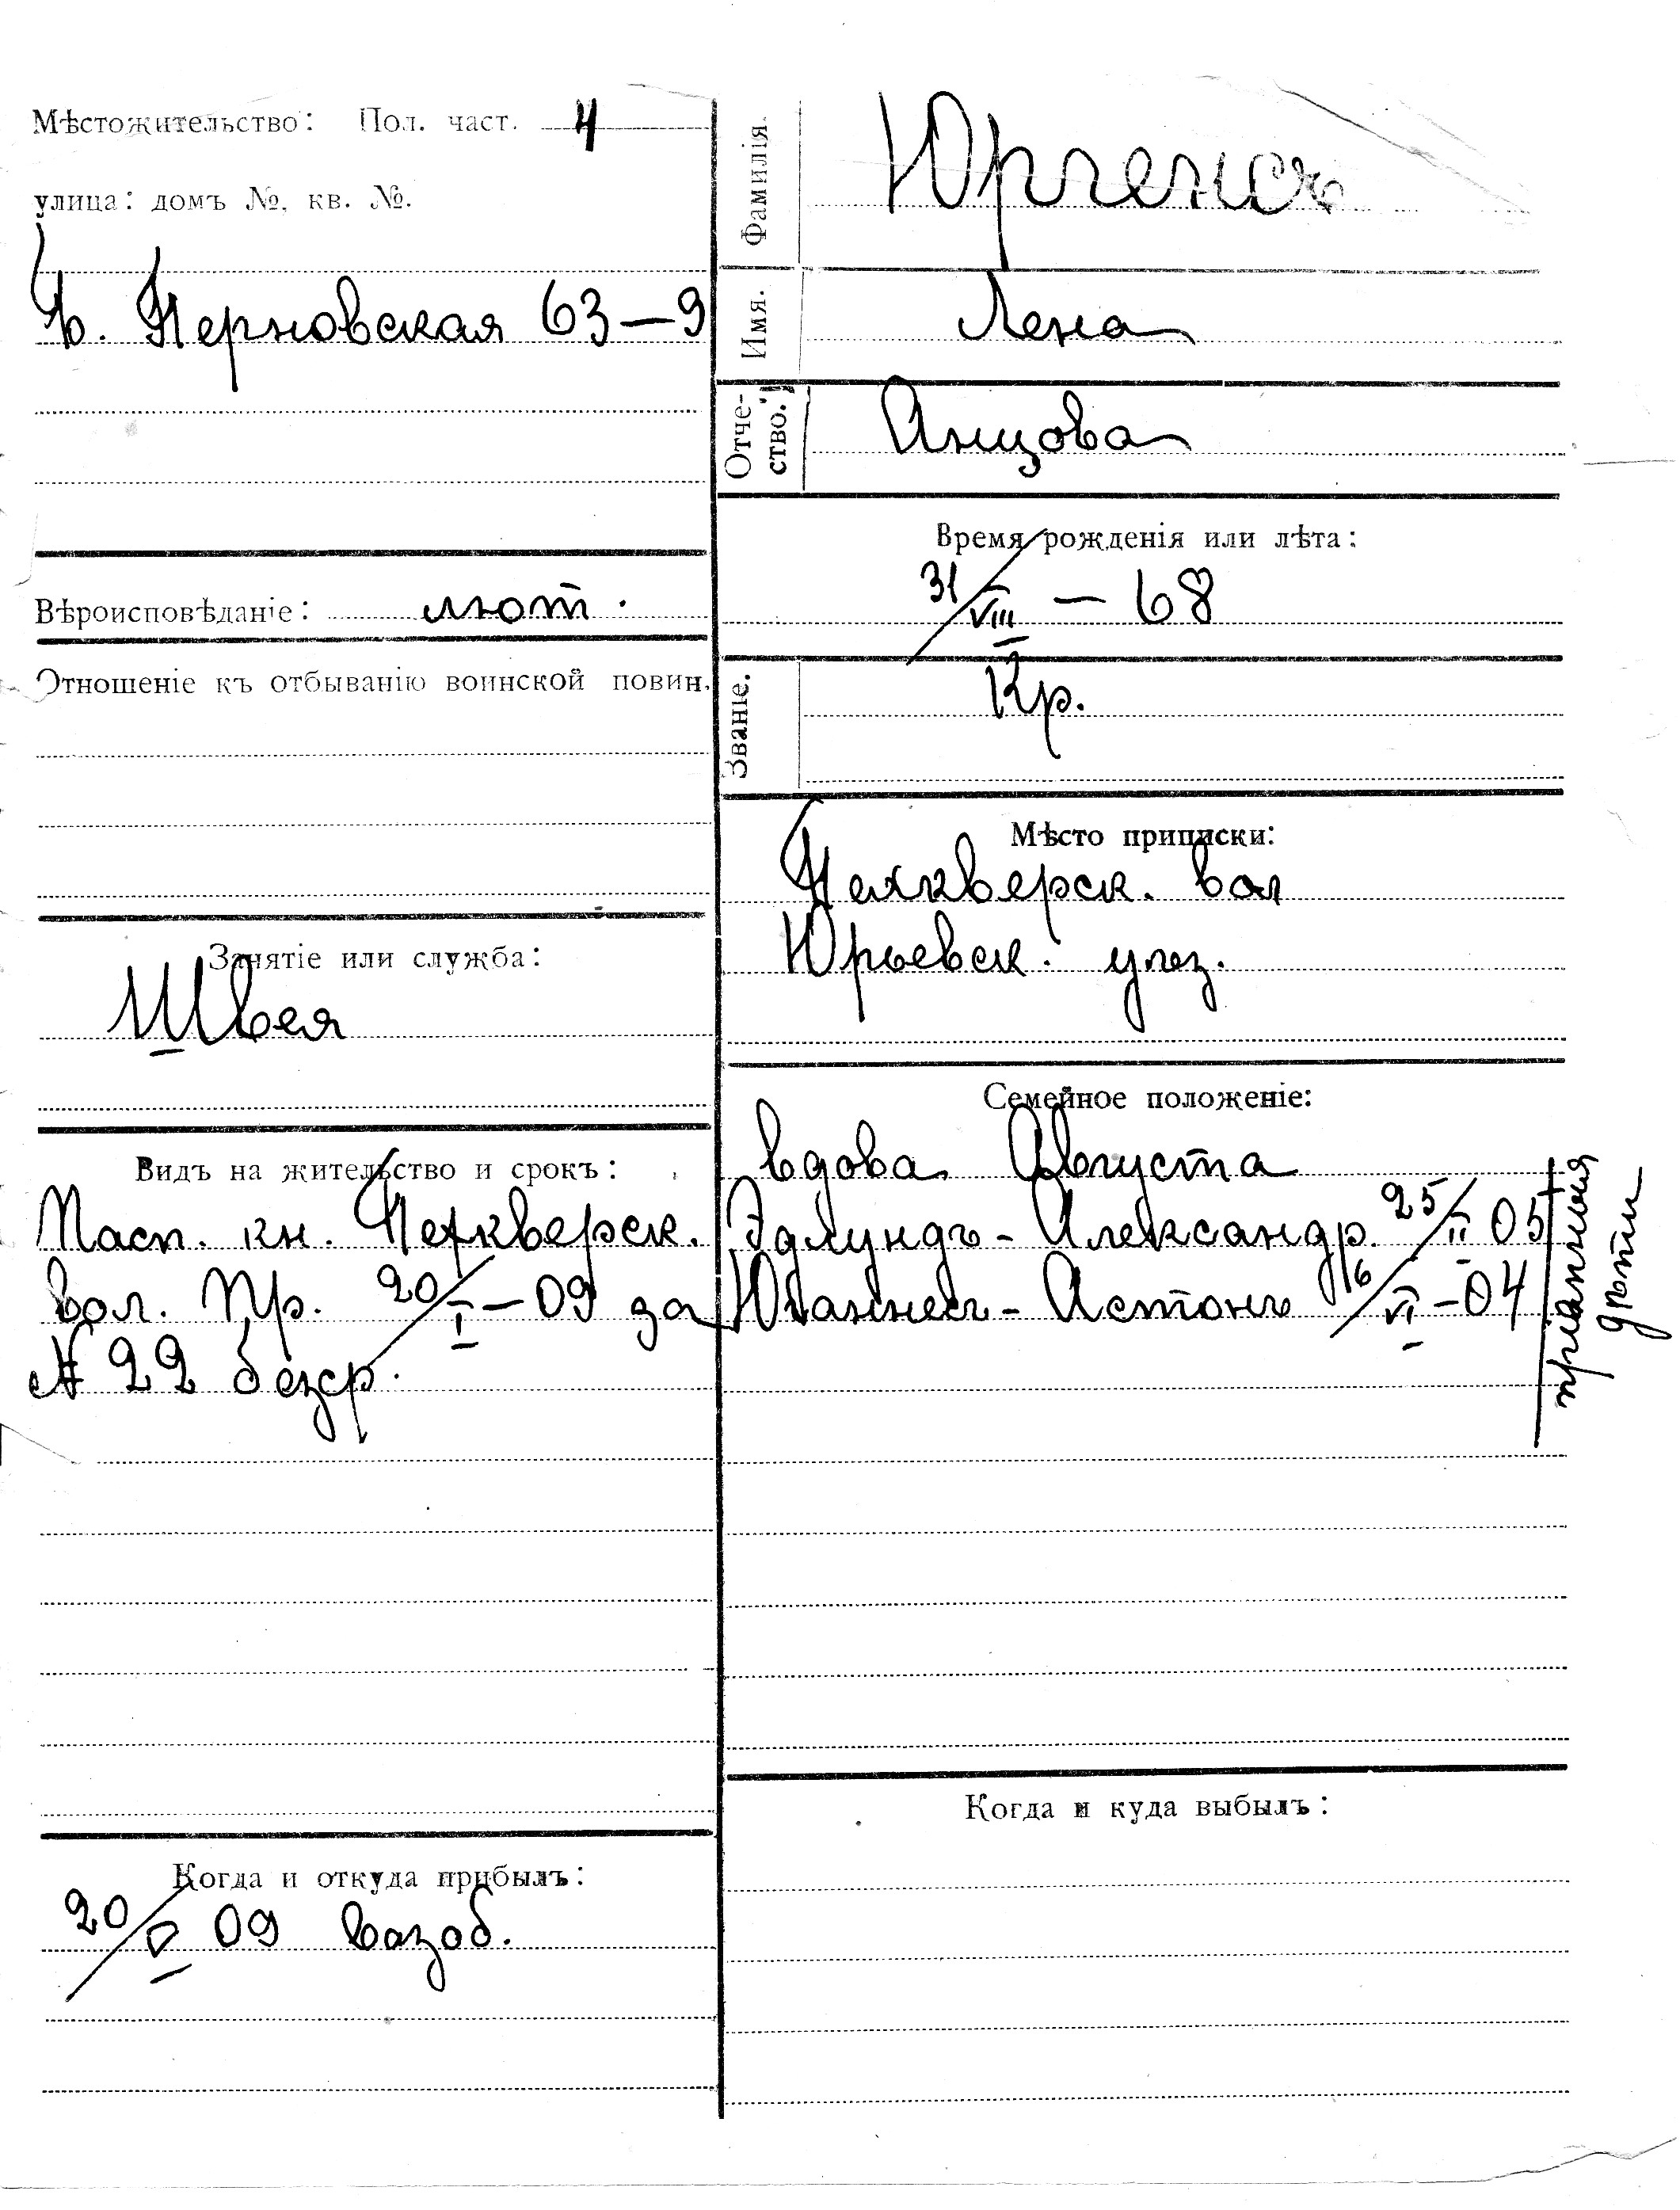 Мѣстожительство: Пол. част. 4
улица: домъ №, кв. №.
Б. Перновская 63—9
Вѣроисповѣданіе: лют.
Отношеніе къ отбыванію воинской повин.
Занятіе или служба:
Швея
Видъ на жительство и срокъ:
Пасп. кн. Пехкверск.
вол. Пр. 20/I—09 за
№ 22 безср.
Когда и откуда прибылъ:
20/V 09
Фамилія.
Юргенсъ
Имя.
Лена
Отче-
ство.
Анцова
Время рожденія или лѣта:
31/VIII — 68
Званіе.
Кр.
Мѣсто приписки:
Пехкверск. вол
Юрьевск. уѣз.
Семейное положеніе:
вдова Августа
Эдмундъ-Александр. 25/II 05
Юганнесъ-Астонъ 16/VI-04
пріемныя
дѣти
Когда и куда выбылъ: